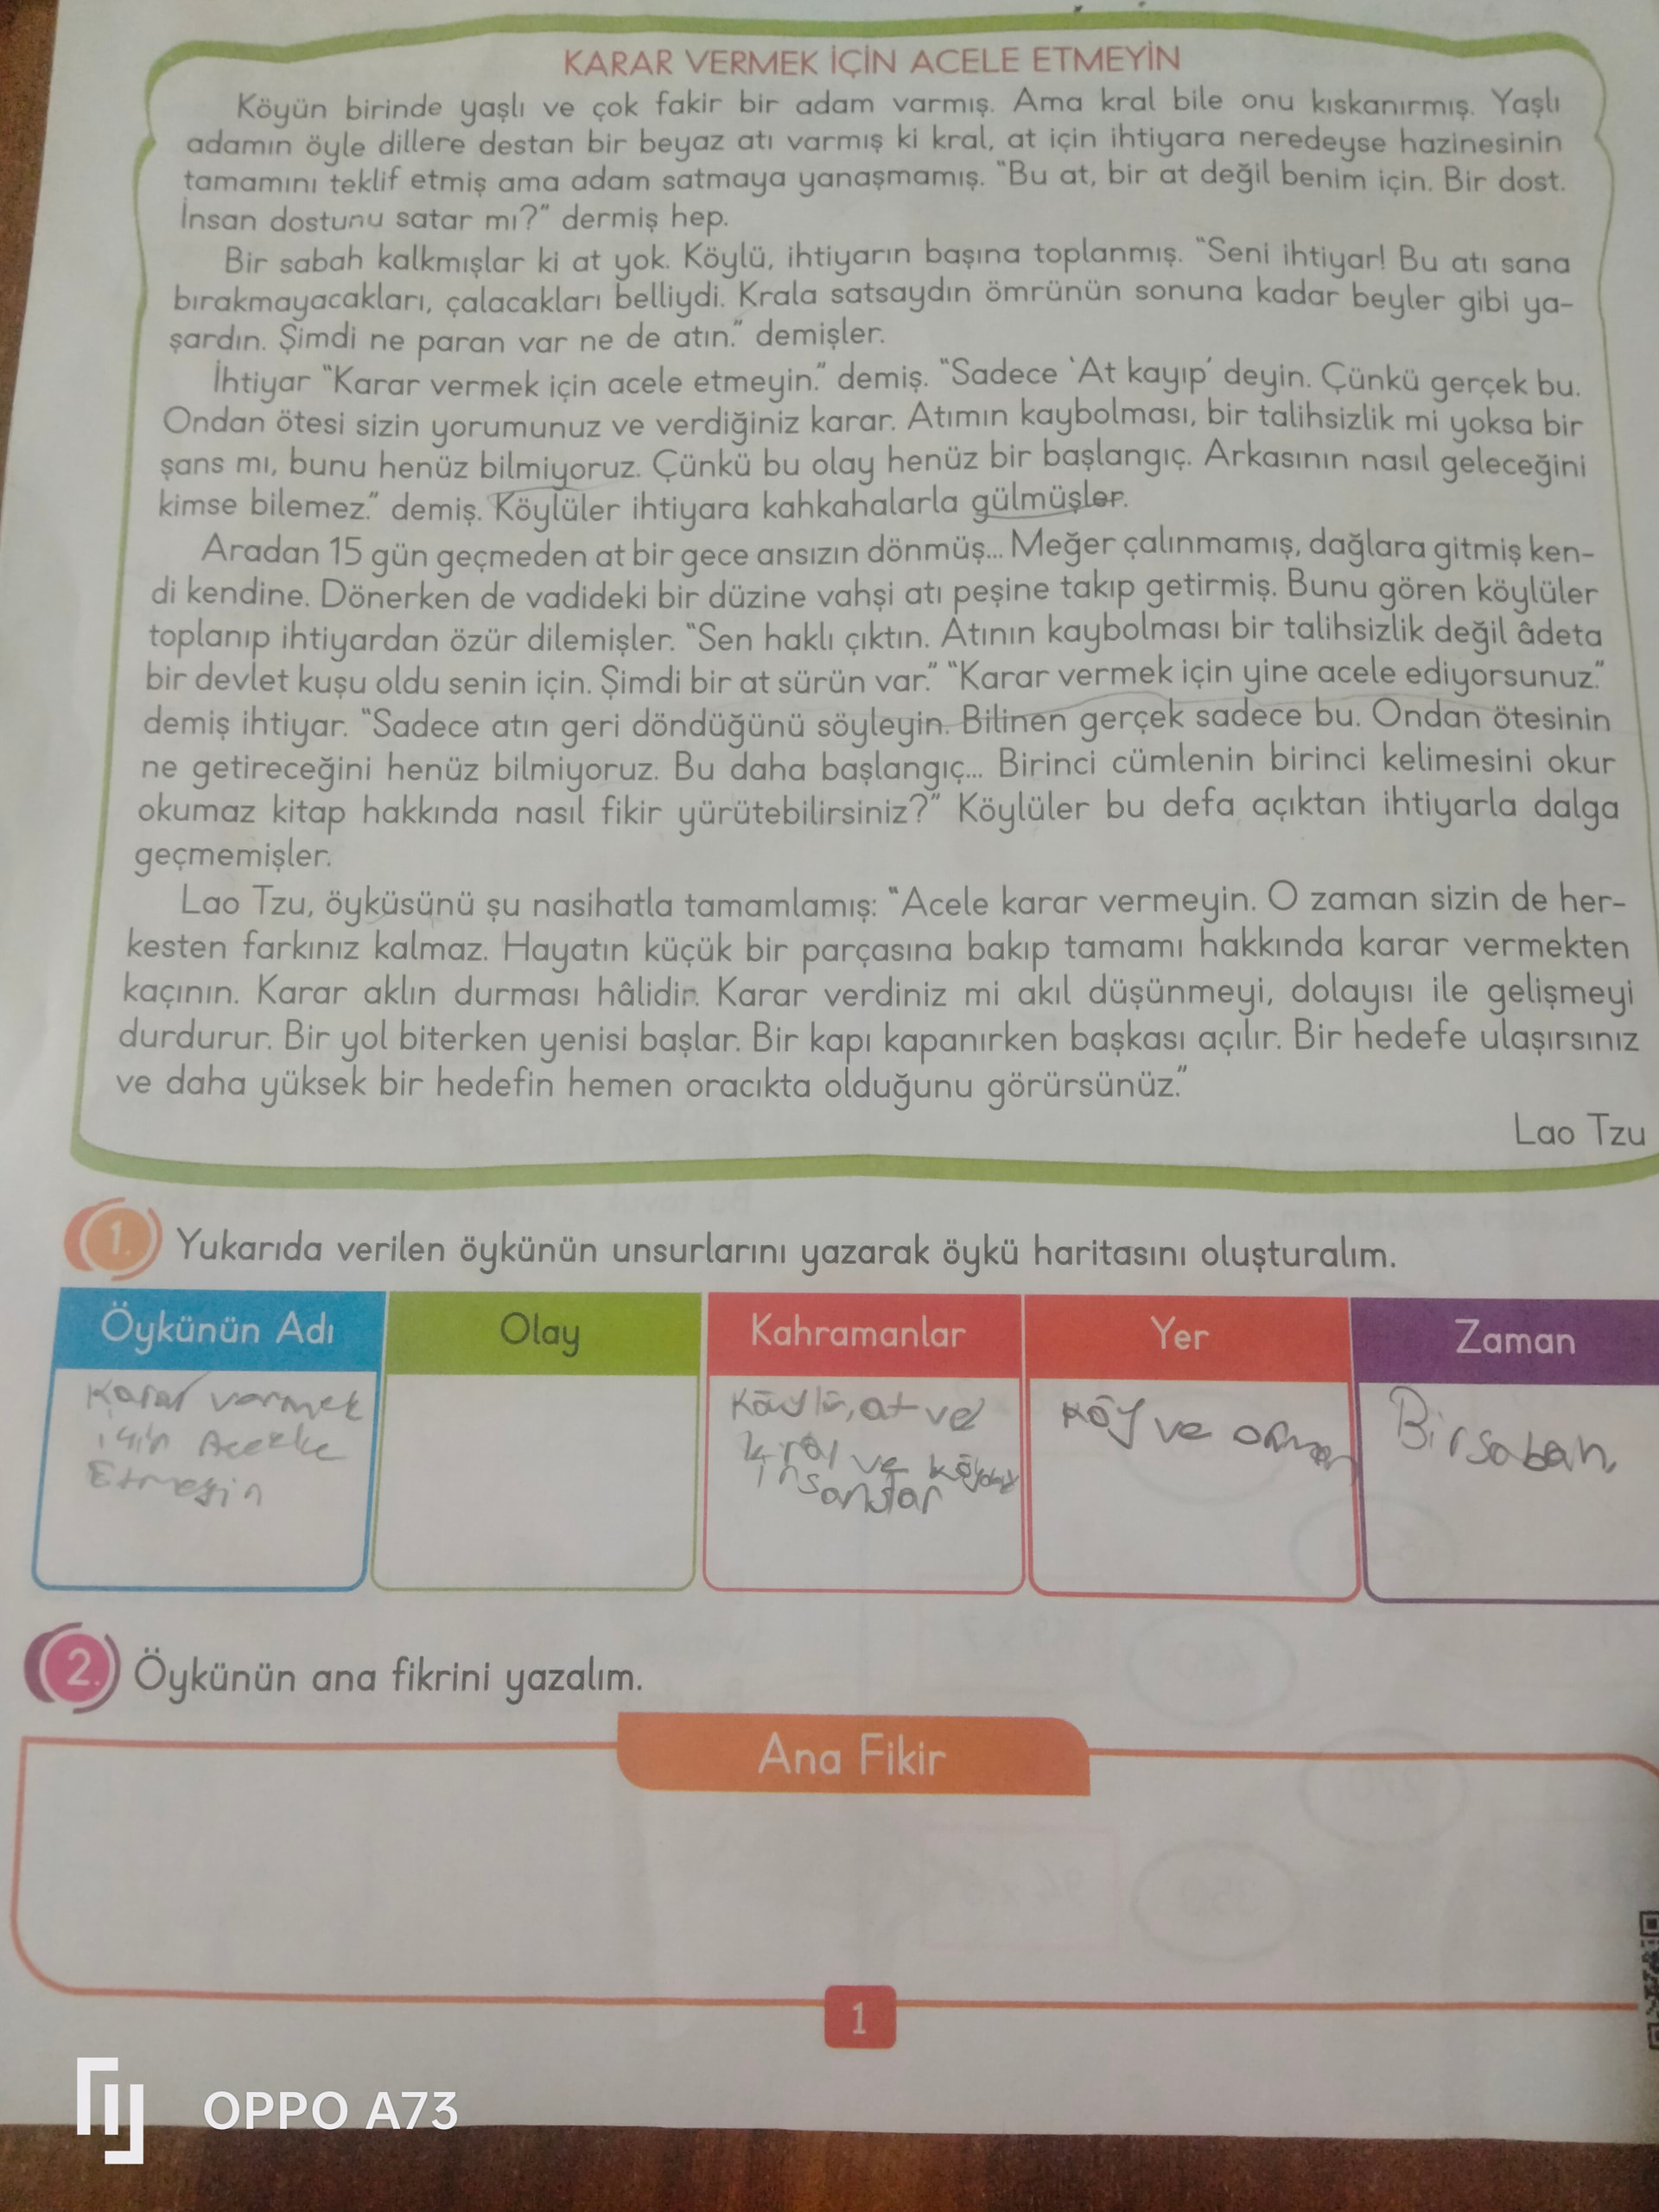 KARAR VERMEK İÇİN ACELE ETMEYİN
Köyün birinde yaşlı ve çok fakir bir adam varmış. Ama kral bile onu kıskanırmış. Yaşlı
adamın öyle dillere destan bir beyaz atı varmış ki kral, at için ihtiyara neredeyse hazinesinin
tamamını teklif etmiş ama adam satmaya yanaşmamış. "Bu at, bir at değil benim için. Bir dost.
İnsan dostunu satar mı?" dermiş hep.
Bir sabah kalkmışlar ki at yok. Köylü, ihtiyarın başına toplanmış. "Seni ihtiyar! Bu atı sana
bırakmayacakları, çalacakları belliydi. Krala satsaydın ömrünün sonuna kadar beyler gibi ya-
şardın. Şimdi ne paran var ne de atın." demişler.
İhtiyar "Karar vermek için acele etmeyin." demiş. "Sadece 'At kayıp' deyin. Çünkü gerçek bu.
Ondan ötesi sizin yorumunuz ve verdiğiniz karar. Atımın kaybolması, bir talihsizlik mi yoksa bir
şans mı, bunu henüz bilmiyoruz. Çünkü bu olay henüz bir başlangıç. Arkasının nasıl geleceğini
kimse bilemez." demiş. Köylüler ihtiyara kahkahalarla gülmüşler.
Aradan 15 gün geçmeden at bir gece ansızın dönmüş... Meğer çalınmamış, dağlara gitmiş ken-
di kendine. Dönerken de vadideki bir düzine vahşi atı peşine takıp getirmiş. Bunu gören köylüler
toplanıp ihtiyardan özür dilemişler. "Sen haklı çıktın. Atının kaybolması bir talihsizlik değil âdeta
bir devlet kuşu oldu senin için. Şimdi bir at sürün var." "Karar vermek için yine acele ediyorsunuz."
demiş ihtiyar. "Sadece atın geri döndüğünü söyleyin. Bilinen gerçek sadece bu. Ondan ötesinin
ne getireceğini henüz bilmiyoruz. Bu daha başlangıç... Birinci cümlenin birinci kelimesini okur
okumaz kitap hakkında nasıl fikir yürütebilirsiniz?" Köylüler bu defa açıktan ihtiyarla dalga
geçmemişler.
Lao Tzu, öyküsünü şu nasihatla tamamlamış: "Acele karar vermeyin. O zaman sizin de her-
kesten farkınız kalmaz. Hayatın küçük bir parçasına bakıp tamamı hakkında karar vermekten
kaçının. Karar aklın durması hâlidir. Karar verdiniz mi akıl düşünmeyi, dolayısı ile gelişmeyi
durdurur. Bir yol biterken yenisi başlar. Bir kapı kapanırken başkası açılır. Bir hedefe ulaşırsınız
ve daha yüksek bir hedefin hemen oracıkta olduğunu görürsünüz."
Lao Tzu
1. Yukarıda verilen öykünün unsurlarını yazarak öykü haritasını oluşturalım.
Öykünün Adı Olay Kahramanlar Yer Zaman
Karar vermek
için
Etmeyin
Köylü, at ve
kral ve
insanlar
Köy ve orman
Bir sabah
2. Öykünün ana fikrini yazalım.
Ana Fikir
1
OPPO A73